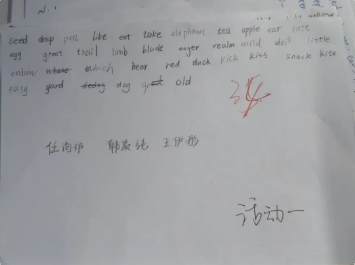 seed deep pal like eat take elephant tea apple ear rate
egg great tail limb blade eager realm mild doll little
enbow where which hear red duck kick kiss snack kite
easy yard dog great old
34
韩辰纯 王伊彤
活动一